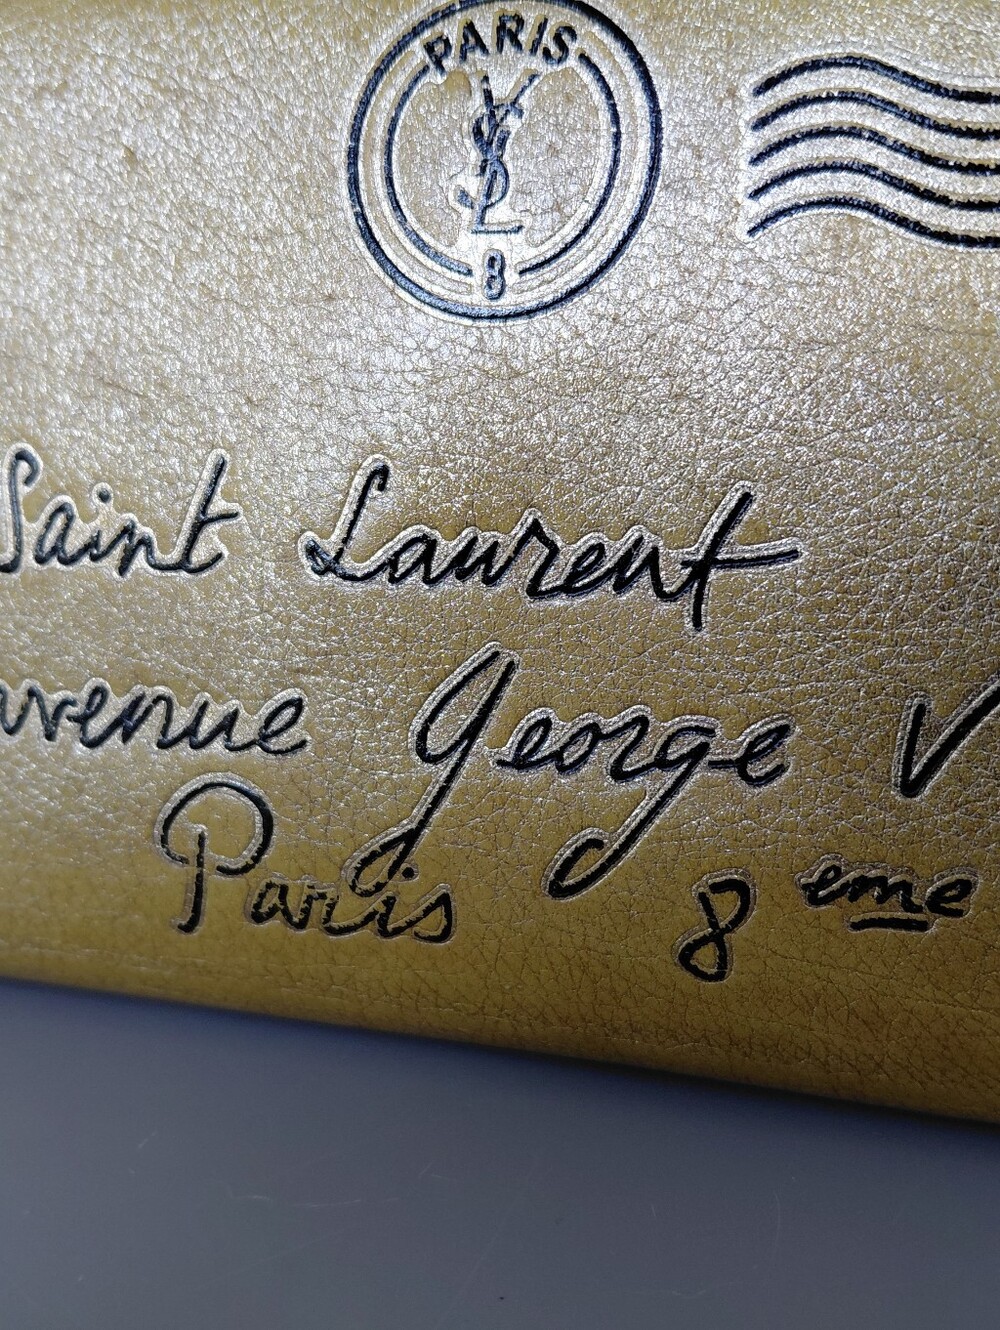 PARIS
YSL
8
Saint Laurent
avenue George V
Paris 8 eme